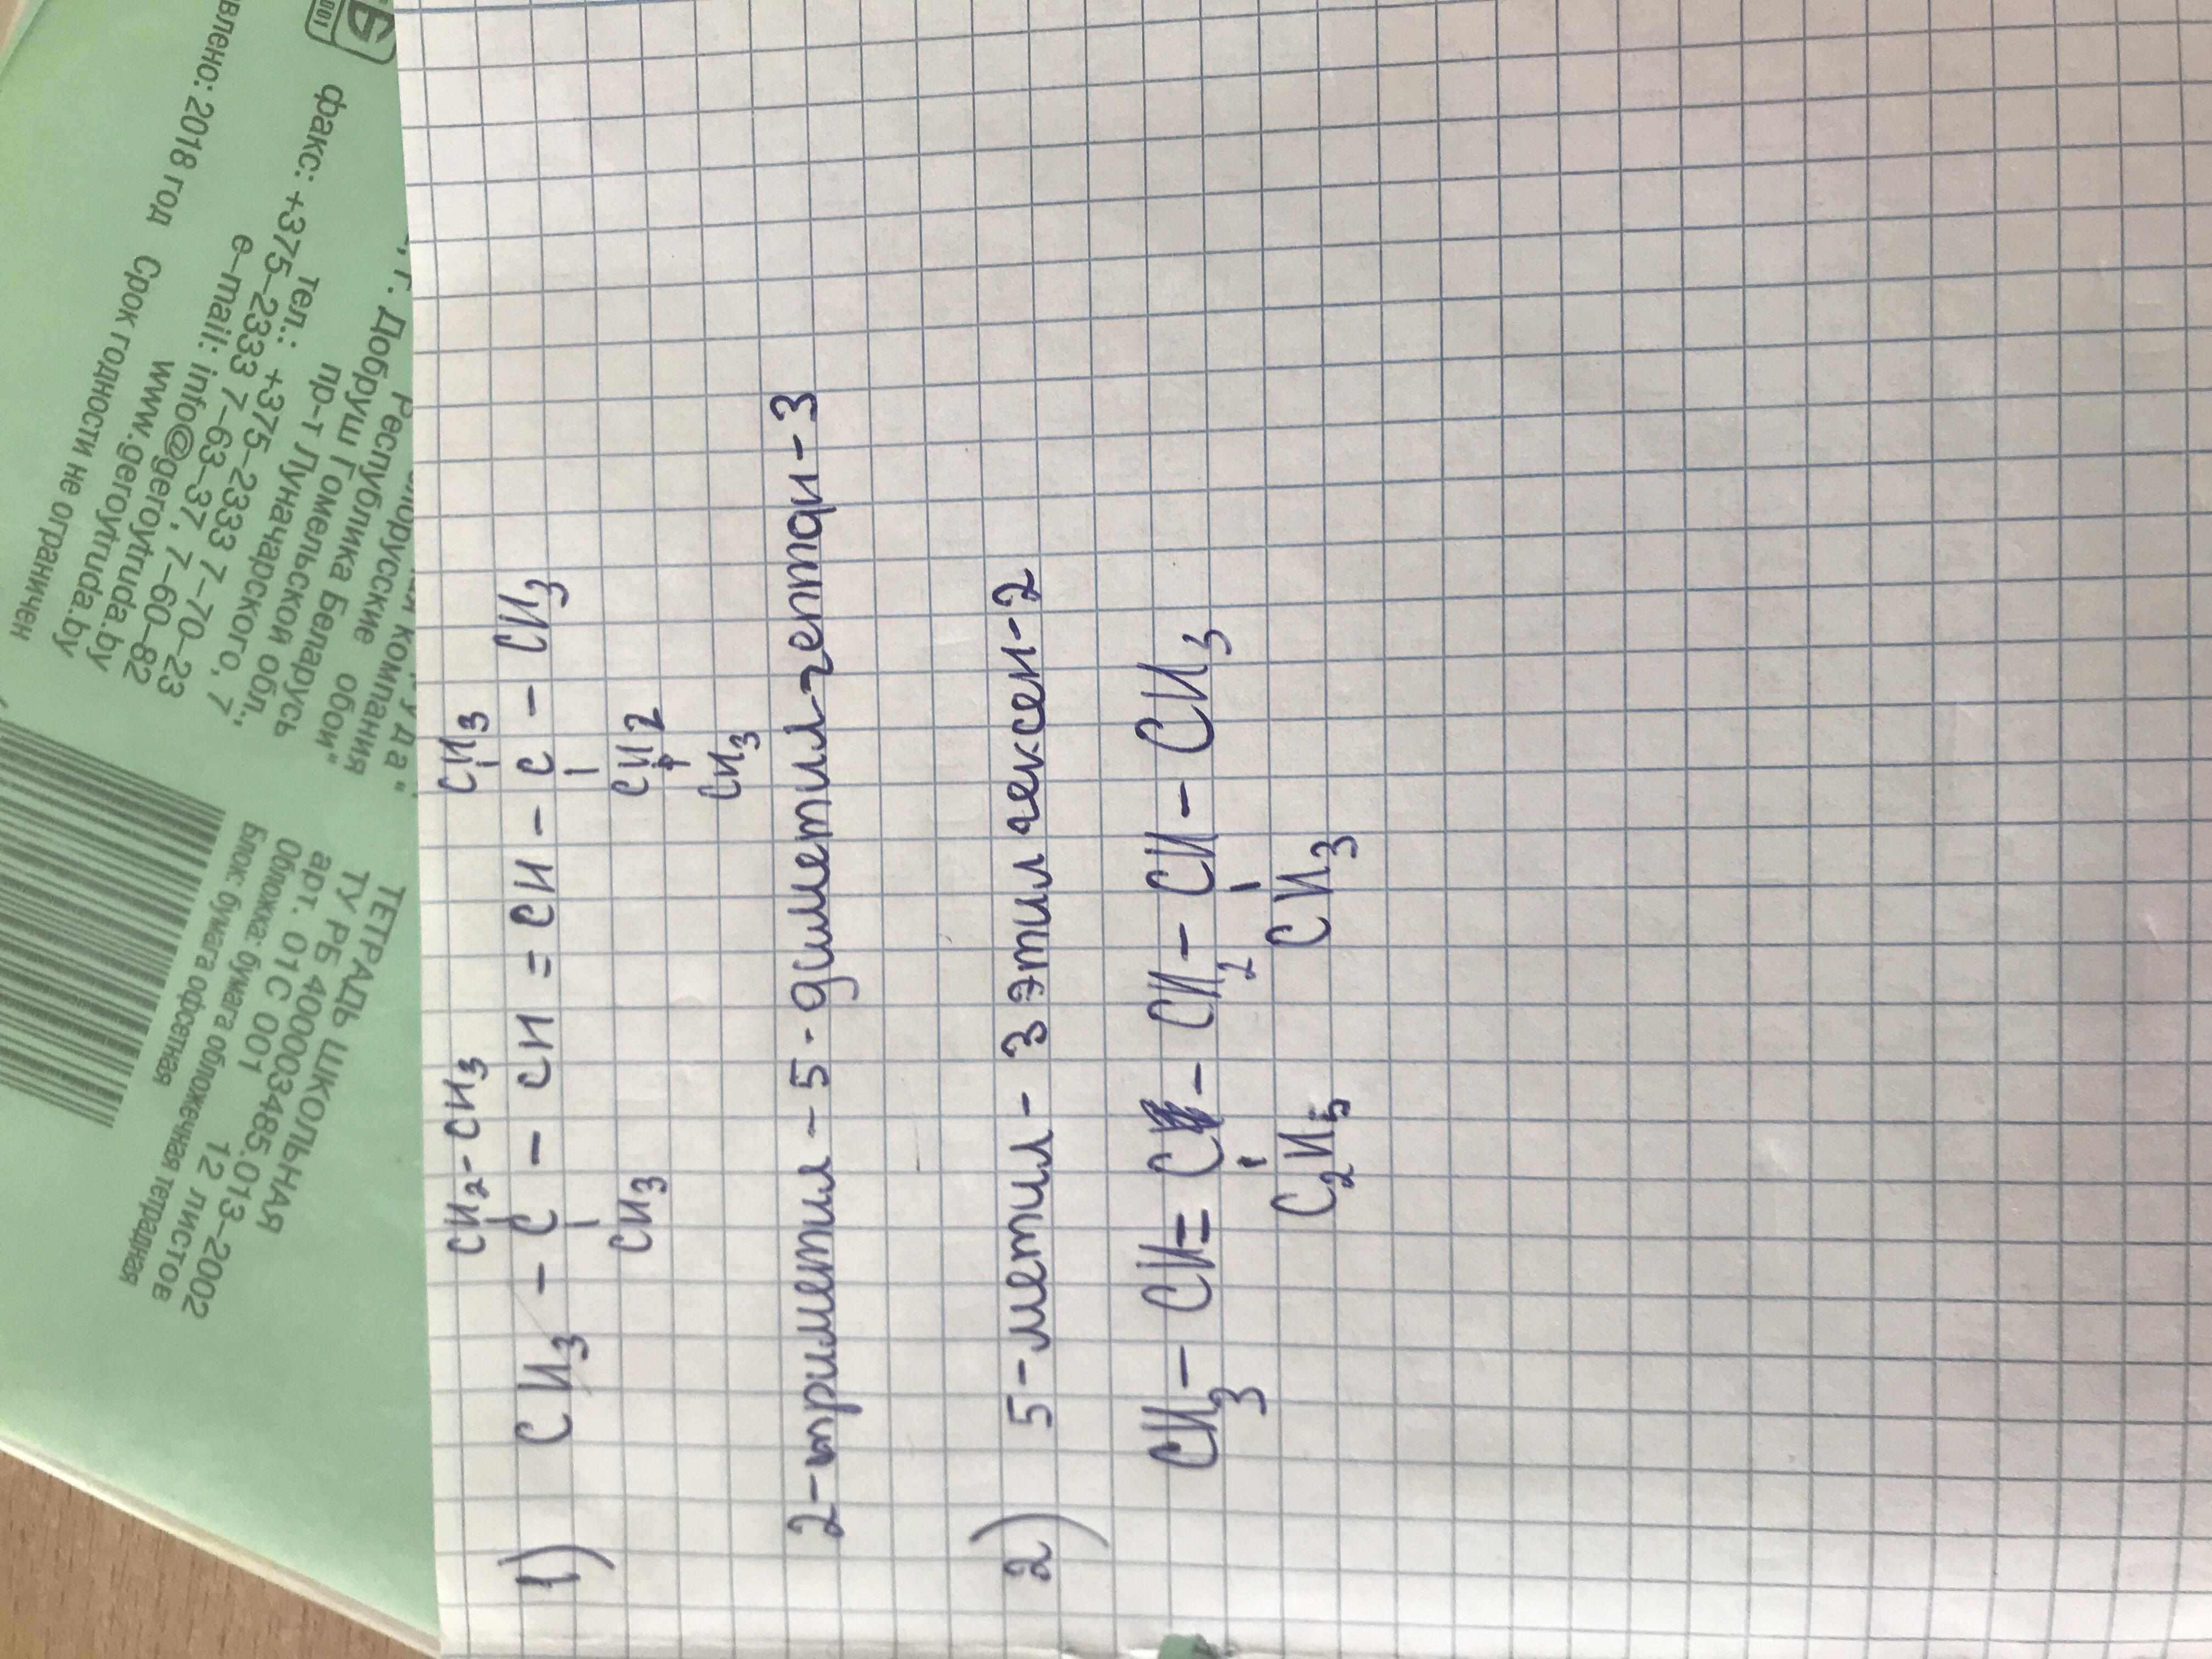 CH₂-CH₃ CH₃
1) CH₃ - C - CH = CH - C - CH₃
CH₃ CH₂
CH₃
2-триметил-5-диметил-гептан-3
2) 5-метил-3 этил гексен-2
CH₃ - CH = C - CH₂ - CH - CH₃
C₂H₅ CH₃
ТЕТРАДЬ ШКОЛЬНАЯ
ТУ РБ 400003485.013-2002
арт. 01С 001 12 листов
Обложка: бумага обложечная тетрадная
Блок: бумага офсетная
компания
"Белорусские обои"
Республика Беларусь
г. Добруш Гомельской обл.,
пр-т Луначарского, 7
тел.: +375-2333 7-70-23
факс: +375-2333 7-63-37, 7-60-82
e-mail: info@geroytruda.by
www.geroytruda.by
2018 год Срок годности не ограничен
001